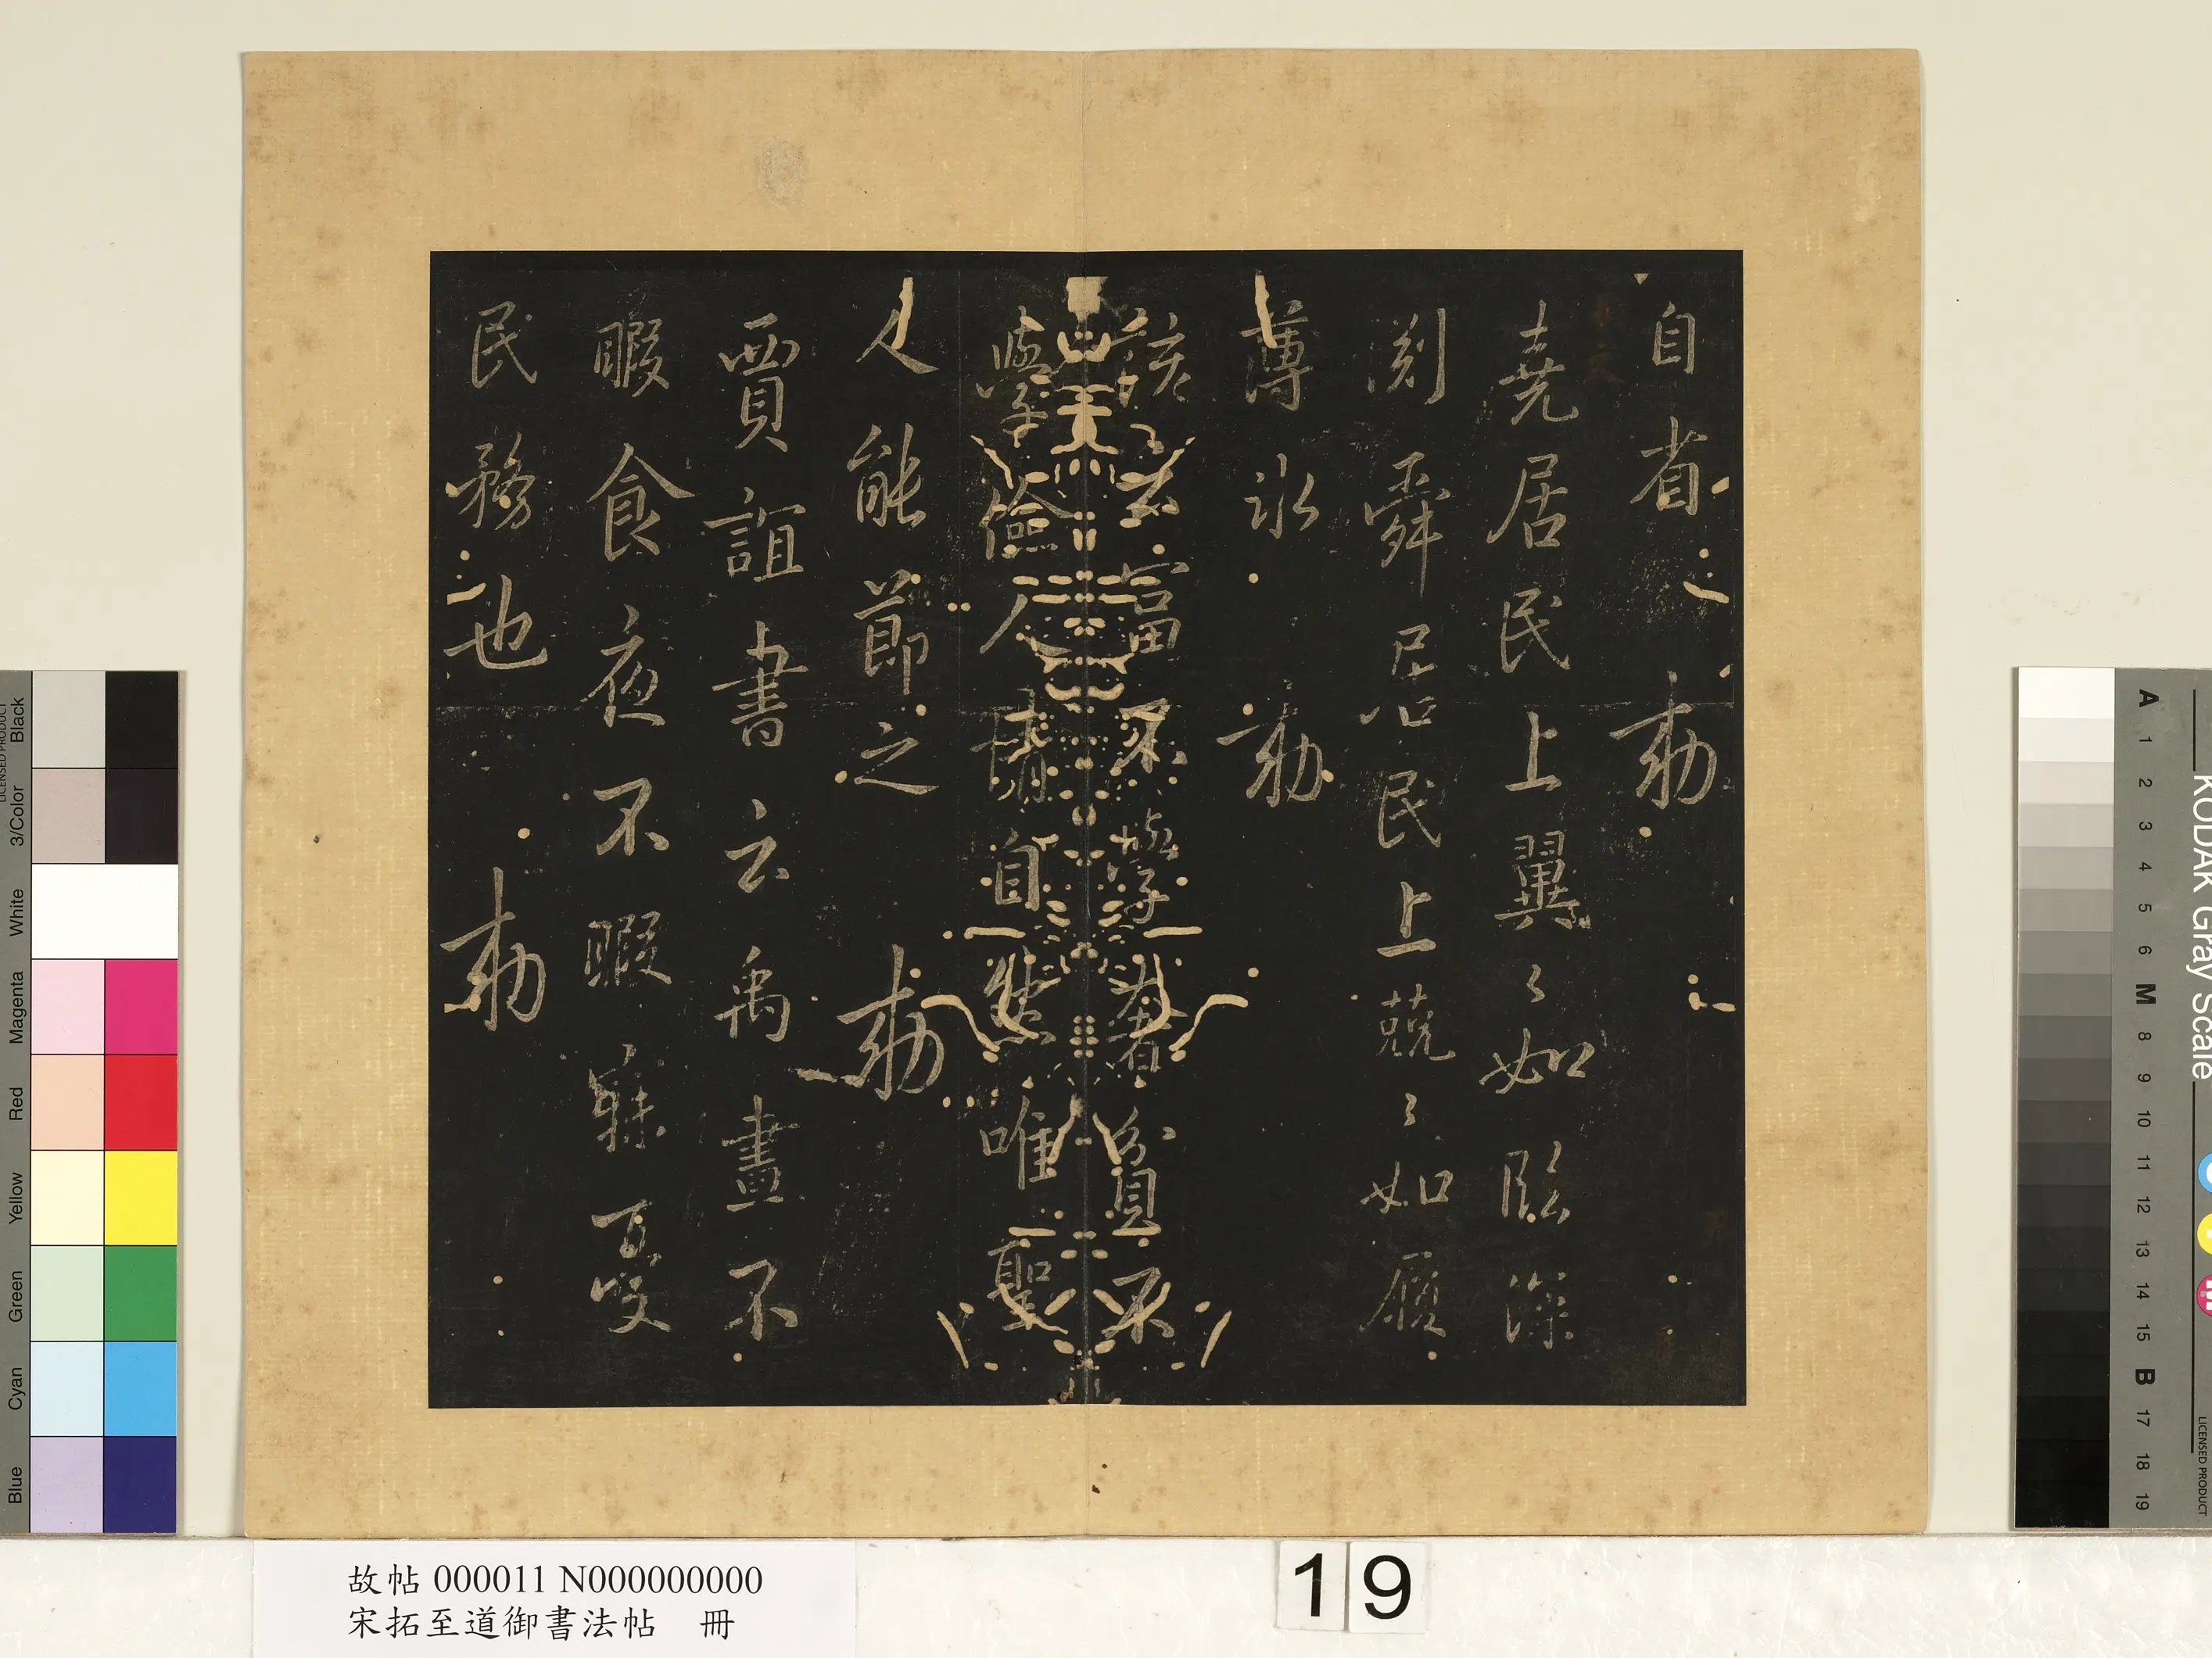 自省 勅
堯居民上翼〻如臨深
渕舜居民上兢〻如履
薄氷 勅
諺云富不學奢貧不
學儉人情自然唯聖
人能節之 勅
賈誼書云禹晝不
暇食夜不暇寐憂
民務也 勅
故帖 000011 N000000000
宋拓至道御書法帖 冊
19
Black
3/Color
White
Magenta
Red
Yellow
Green
Cyan
Blue
LICENSED PRODUCT
KODAK Gray Scale
A 1 2 3 4 5 6 M 8 9 10 11 12 13 14 15 B 17 18 19
LICENSED PRODUCT